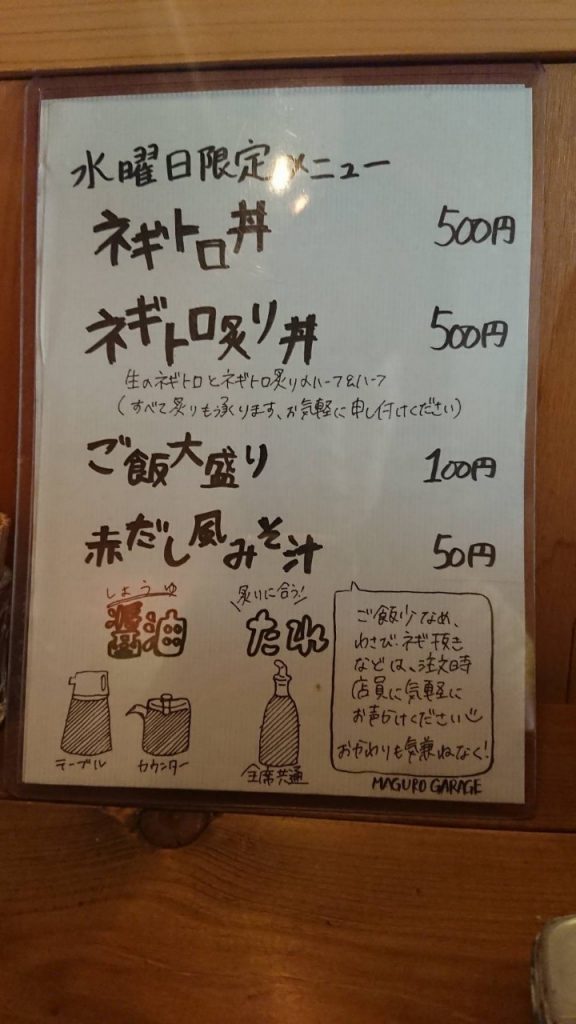 水曜日限定メニュー
ネギトロ丼 500円
ネギトロ炙り丼 500円
生のネギトロとネギトロ炙りのハーフ&ハーフ
(すべて炙りも承ります、お気軽に申し付けください)
ご飯大盛り 100円
赤だし風みそ汁 50円
しょうゆ
醤油
テーブル
カウンター
炙りに合う!
たれ
全席共通
ご飯少なめ、
わさび・ネギ抜き
などは、注文時
店員に気軽に
お声がけください
おかわりも気兼ねなく!
MAGURO GARAGE